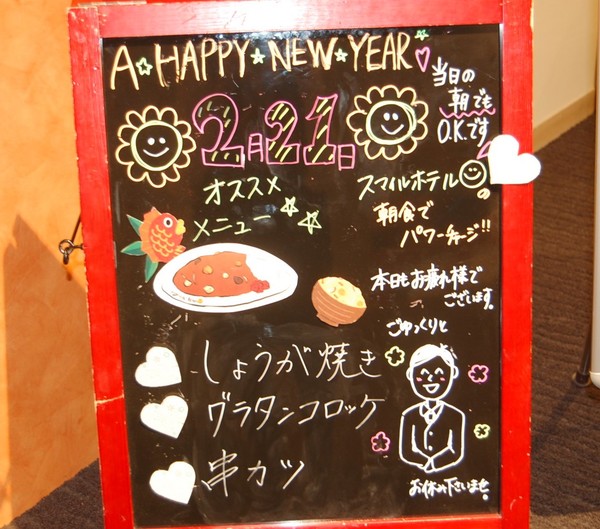 A HAPPY NEW YEAR
当日の
朝でも
O.K.です
2月21日
オススメ
メニュー
スマイルホテルの
朝食で
パワーチャージ!!
本日もお疲れ様で
ございます。
ごゆっくりと
しょうが焼き
グラタンコロッケ
串カツ
お休み下さいませ。